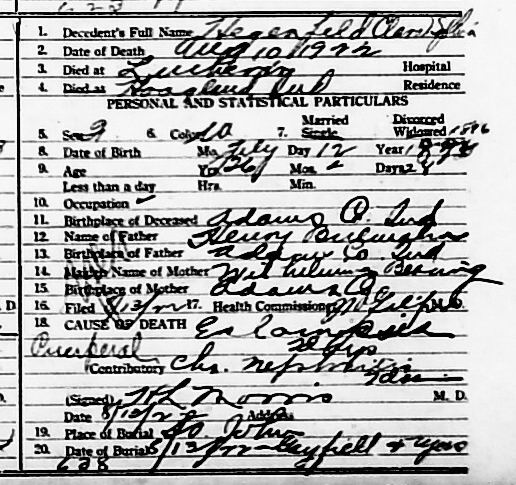 1. Decedent's Full Name Hegenfeld Clara Sylvia
2. Date of Death Aug 10 1922
3. Died at Lutheran Hospital
4. Died at Hoagland Ind Residence
PERSONAL AND STATISTICAL PARTICULARS
Married Divorced
5. Sex F 6. Color W 7. Single Widowed 1896
8. Date of Birth Mo. July Day 12 Year
9. Age Yrs. 26 Mos. Days 28
Less than a day Hrs. Min.
10. Occupation
11. Birthplace of Deceased Adams Co. Ind
12. Name of Father Henry
13. Birthplace of Father Adams Co. Ind
14. Maiden Name of Mother Wilhelmina
15. Birthplace of Mother Adams Co.
16. Filed 8/13/22 17. Health Commissioner M. D.
18. CAUSE OF DEATH Eclampsia
Puerperal 2 days
Contributory Chr. nephritis
(Signed) H L Morris M. D.
Date 8/12/22 Address
19. Place of Burial St John
20. Date of Burial 8/13/22
628